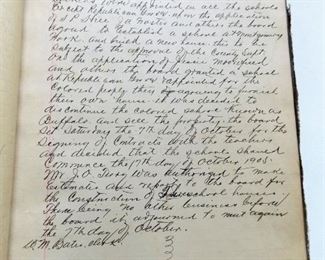 in all the schools
at Republican Grove upon the application
of S P Hice & others and others the board
agreed to establish a school at Montgomery
and build a new house this to be
subject to the approval of the County Supt.
On the application of
and others the board granted a school
at Republican Grove for the
Colored people they agreeing to furnish
their own house. It was decided to
discontinue the colored school known as
Buffalo and sell the property. The board
set Saturday the 7th day of October for the
signing of contracts with the teachers
and decided that schools should
commence the 17th day of October 1905.
Mr J.O. was authorized to make
estimates and report to the board for
the construction of school houses
There being no other business before
the board it adjourned to meet again
the 7th day of October.
W.M. Bates, clerk.